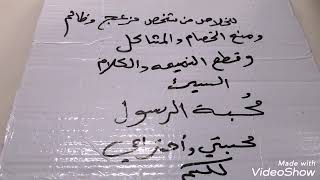 للخلاص من شخص مزعج وظالم
ومنع الخصام والمشاكل
وقطع النميمه والكلام
السيئ
محبة الرسول
محبتي وأحترامي
لكم
Made with
VideoShow